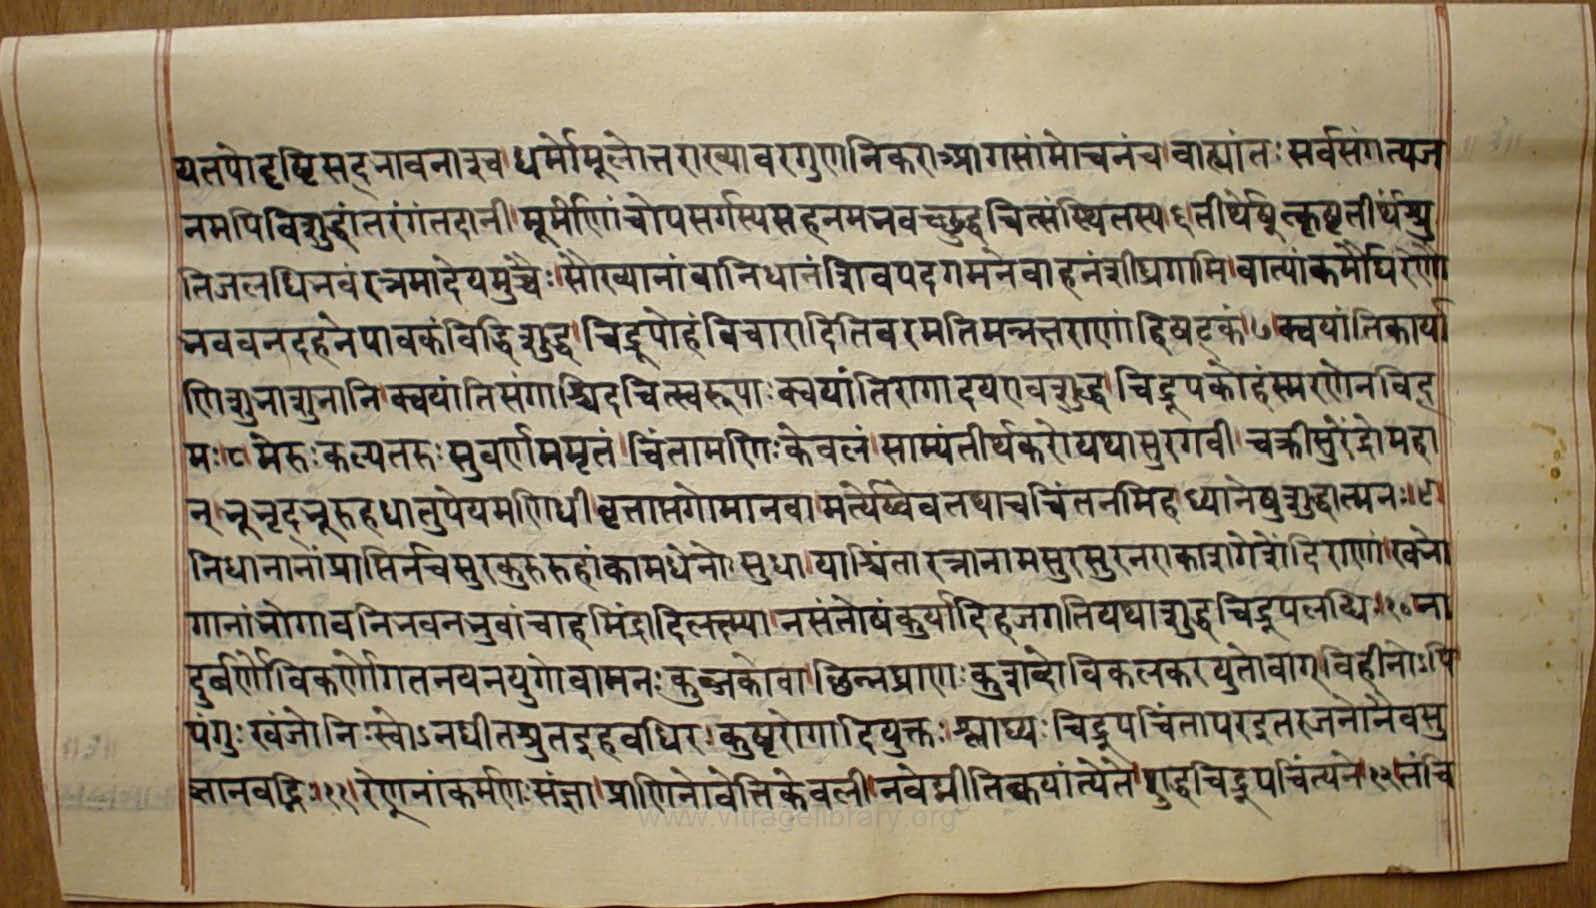 यतपोदृष्टिसद्भावनाश्च।धर्मोमूलोत्तराख्यावरगुणनिकराआगसांमोचनंच।वाह्यांतःसर्वसंगत्यज
नमपिविशुद्धांतरंगंतदानी।मूर्मीणांचोपसर्गस्यसहनमभवच्छुद्धचित्संस्थितस्य६तीर्थेषूत्कृष्टतीर्थंश्रु
तिजलधिभवंरत्नमादेयमुच्चैः।सौख्यानांवानिधानंशिवपदगमनेवाहनंशीघ्रगामि।वात्यांकर्मौघरेणौ
भववनदहनेपावकंविद्धिशुद्ध।चिद्रूपोहंविचारादितिवरमतिमन्नक्षराणांहिषट्कं।७।क्वयांतिकार्या
णिशुभाशुभानि।क्वयांतिसंगाश्चिदचित्स्वरूपाः।क्वयांतिरागादयएवशुद्ध।चिद्रूपकोहंस्मरणेनविद्
मः।८।मेरुःकल्पतरुःसुवर्णममृतं।चिंतामणिःकेवलं।साम्यंतीर्थकरोयथासुरगवी।चक्रीसुरेंद्रोमहा
न्।भूभृद्भूरुहधातुपेयमणिधीवृत्ताप्तगोमानवामर्त्येष्वेवतथाचचिंतनमिहध्यानेषुशुद्धात्मनः।९।
निधानानांप्राप्तिर्नचसुरकुरुरुहांकामधेनोःसुधा।याश्चिंतारत्नानामसुरसुरनराकाशगेशेंदिराणां।खभो
गानांभोगावनिभवनभुवांचाहमिंद्रादिलक्ष्म्या।नसंतोषंकुर्यादिहजगतियथाशुद्धचिद्रूपलब्धिः।१०।ना
दुर्वर्णोविकर्णोगतनयनयुगोवामनःकुब्जकोवा।छिन्नघ्राणःकुशब्दोविकलकरयुतोवाग्विहीनोऽपि
पंगुःखंजोनिःस्वोऽनधीतश्रुतइहवधिरःकुष्टरोगादियुक्तः।श्लाघ्यःचिद्रूपचिंतापरइतरजनोनैवसु
ज्ञानवद्भिः।११।रेणूनांकर्मणःसंज्ञा।प्राणिनोवेत्तिकेवली।नवेद्मीतिक्वयांत्येते।शुद्धचिद्रूपचिंत्यने१२।तंचि
www.vitragelibrary.org